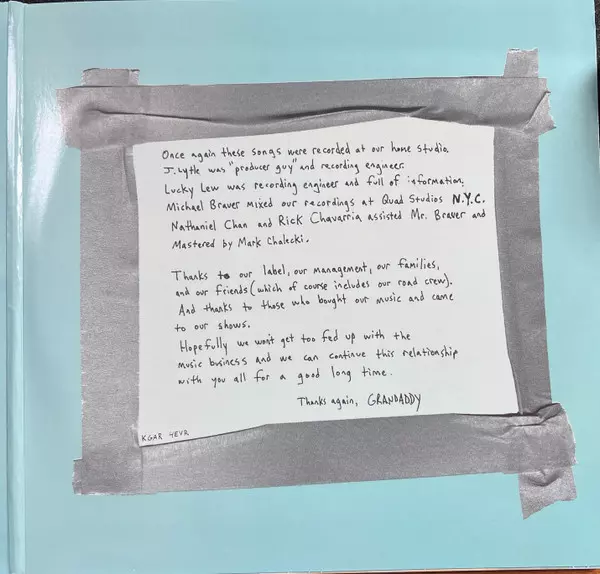 Once again these songs were recorded at our home studio.
J. Lytle was "producer guy" and recording engineer.
Lucky Lew was recording engineer and full of information.
Michael Braver mixed our recordings at Quad Studios N.Y.C.
Nathaniel Chan and Rick Chavarria assisted Mr. Braver and
Mastered by Mark Chalecki.
Thanks to our label, our management, our families,
and our friends (which of course includes our road crew).
And thanks to those who bought our music and came
to our shows.
Hopefully we won't get too fed up with the
music business and we can continue this relationship
with you all for a good long time.
Thanks again, GRANDADDY
KGAR 4EVR